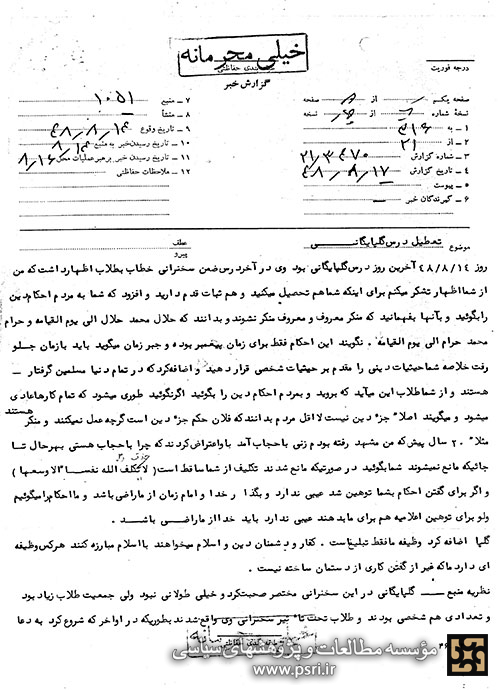 خیلی محرمانه
طبقه‌بندی حفاظتی
درجه فوریت
گزارش خبر
صفحه یکم از صفحه
نسخهٔ شماره از نسخه
۱ ـ به ۳۱۶
۲ ـ از ۲۱
۳ ـ شماره گزارش
۴ ـ تاریخ گزارش ۴۸/۸/۱۷
۵ ـ پیوست
۶ ـ گیرندگان خبر
۷ ـ منبع ۱۰۵۱
۸ ـ منشأ
۹ ـ تاریخ وقوع ۴۸/۸/۱۴
۱۰ ـ تاریخ رسیدن خبر به منبع ۸/۱۴
۱۱ ـ تاریخ رسیدن خبر برهبر عملیات محل ۸/۱۶
۱۲ ـ ملاحظات حفاظتی
موضوع تعطیل درس گلپایگانی
عطف
پیرو
روز ۴۸/۸/۱۴ آخرین روز درس گلپایگانی بود وی در آخر درس ضمن سخنرانی خطاب بطلاب اظهار داشت که من
از شما اظهار تشکر میکنم برای اینکه شما هم تحصیل میکنید و هم ثبات قدم دارید و افزود که شما به مردم احکام دین
را بگوئید و بآنها بفهمانید که منکر معروف و معروف منکر نشوند و بدانند که حلال محمد حلال الی یوم القیامه و حرام
محمد حرام الی یوم القیامه . نگویند این احکام فقط برای زمان پیغمبر بوده و جبر زمان میگوید باید با زمان جلو
رفت خلاصه شما حیثیات دینی را مقدم بر حیثیات شخصی قرار دهید و اضافه کرد که در تمام دنیا مسلمین گرفتار ـ
هستند و از شما طلاب این میآید که بروید و بمردم احکام دین را بگوئید اگر نگوئید طوری میشود که تمام کارها عادی
میشود و میگویند اصلا" جزء دین نیست لااقل مردم بدانند که فلان حکم جزء دین است گرچه عمل نمیکنند و منکر هستند
مثلا" ۲۰ سال پیش که من مشهد رفته بودم زنی باحجاب آمد باو اعتراض کردند که چرا باحجاب هستی بهرحال تا
جائیکه مانع نمیشوند شما بگوئید در صورتیکه مانع شدند تکلیف از شما ساقط است ( لاتکلف الله نفسا" الا وسعها )
و اگر برای گفتن احکام بشما توهین شد عیبی ندارد و بگذار خدا و امام زمان از ما راضی باشد و ما احکام را میگوئیم
ولو برای توهین اعلامیه هم برای ما بدهند عیبی ندارد باید خدا از ما راضی باشد .
گلپا اضافه کرد وظیفه ما فقط تبلیغ است . کفار و دشمنان دین و اسلام میخواهند با اسلام مبارزه کنند هرکس وظیفه
ای دارد ما که غیر از گفتن کاری از دستمان ساخته نیست .
نظریه منبع ـ گلپایگانی در این سخنرانی مختصر صحبت کرد و خیلی طولانی نبود ولی جمعیت طلاب زیاد بود
و تعدادی هم شخصی بودند و طلاب تحت تاثیر سخنرانی وی واقع شدند بطوریکه در اواخر که شروع کرد به دعا
مؤسسه مطالعات و پژوهشهای سیاسی
www.psri.ir